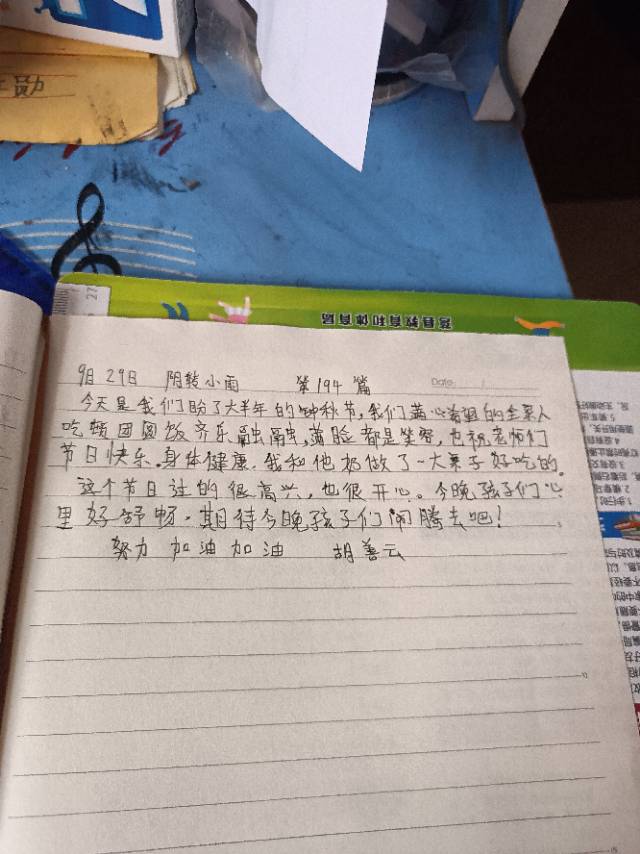 勋
27
9月29日 阴转小雨 第194篇 Date:
今天是我们盼了大半年的中秋节,我们满心着祖的全家人
吃顿团圆饭齐乐融融,满脸都是笑容,也祝老师们
节日快乐.身体健康.我和他奶做了一大桌子好吃的.
这个节日过的很高兴,也很开心。今晚孩子们心
里好舒畅.期待今晚孩子们闹腾去吧!
努力 加油加油 胡善云
县教育和体育局